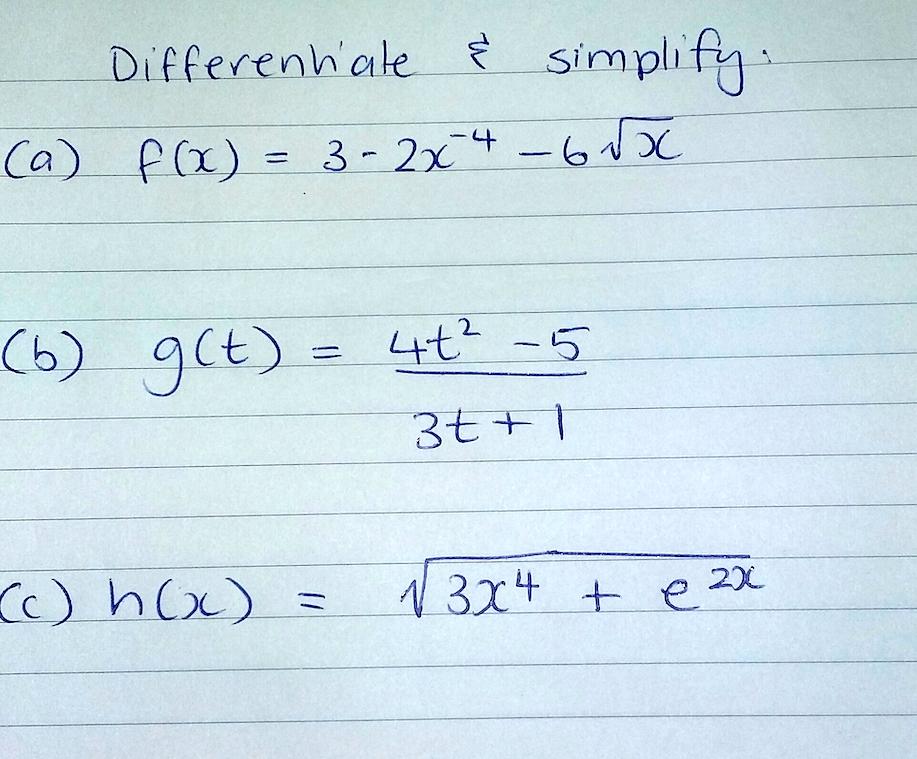 Differentiate & simplify:
(a) f(x) = 3 - 2x⁻⁴ - 6√x
(b) g(t) = 4t² - 5
3t + 1
(c) h(x) = √3x⁴ + e²ˣ